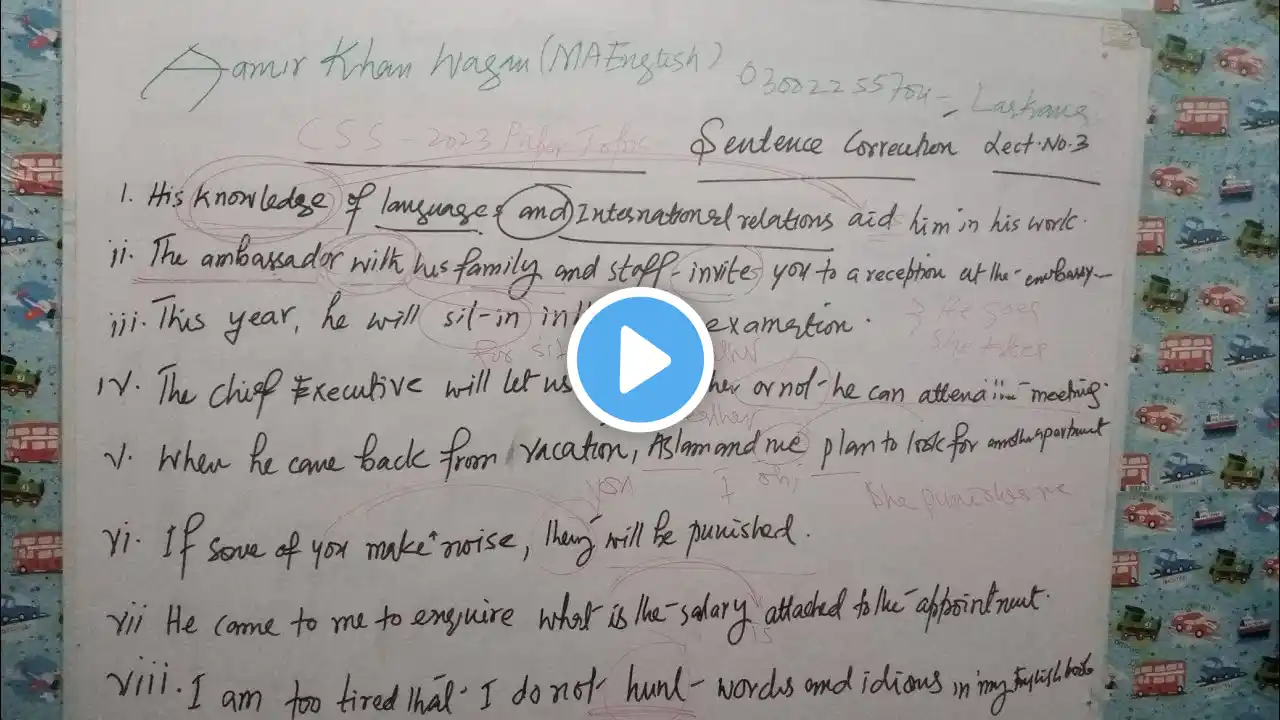 Aamir Khan Wagan (MA English) 03002255704 - Larkana
CSS - 2023 Paper Sentence Correction Lect. No. 3
1. His knowledge of languages and International relations aid him in his work.
ii. The ambassador with his family and staff invites you to a reception at the embassy
iii. This year, he will sit-in in examination.
He goes
for sit She takes
iv. The Chief Executive will let us or not he can attend the meeting.
v. When he came back from vacation, Aslam and me plan to look for another apartment
you I She punishes me
vi. If some of you make noise, they will be punished.
vii He came to me to enquire what is the salary attached to the appointment.
is
viii. I am too tired that I do not hunt words and idioms in my English